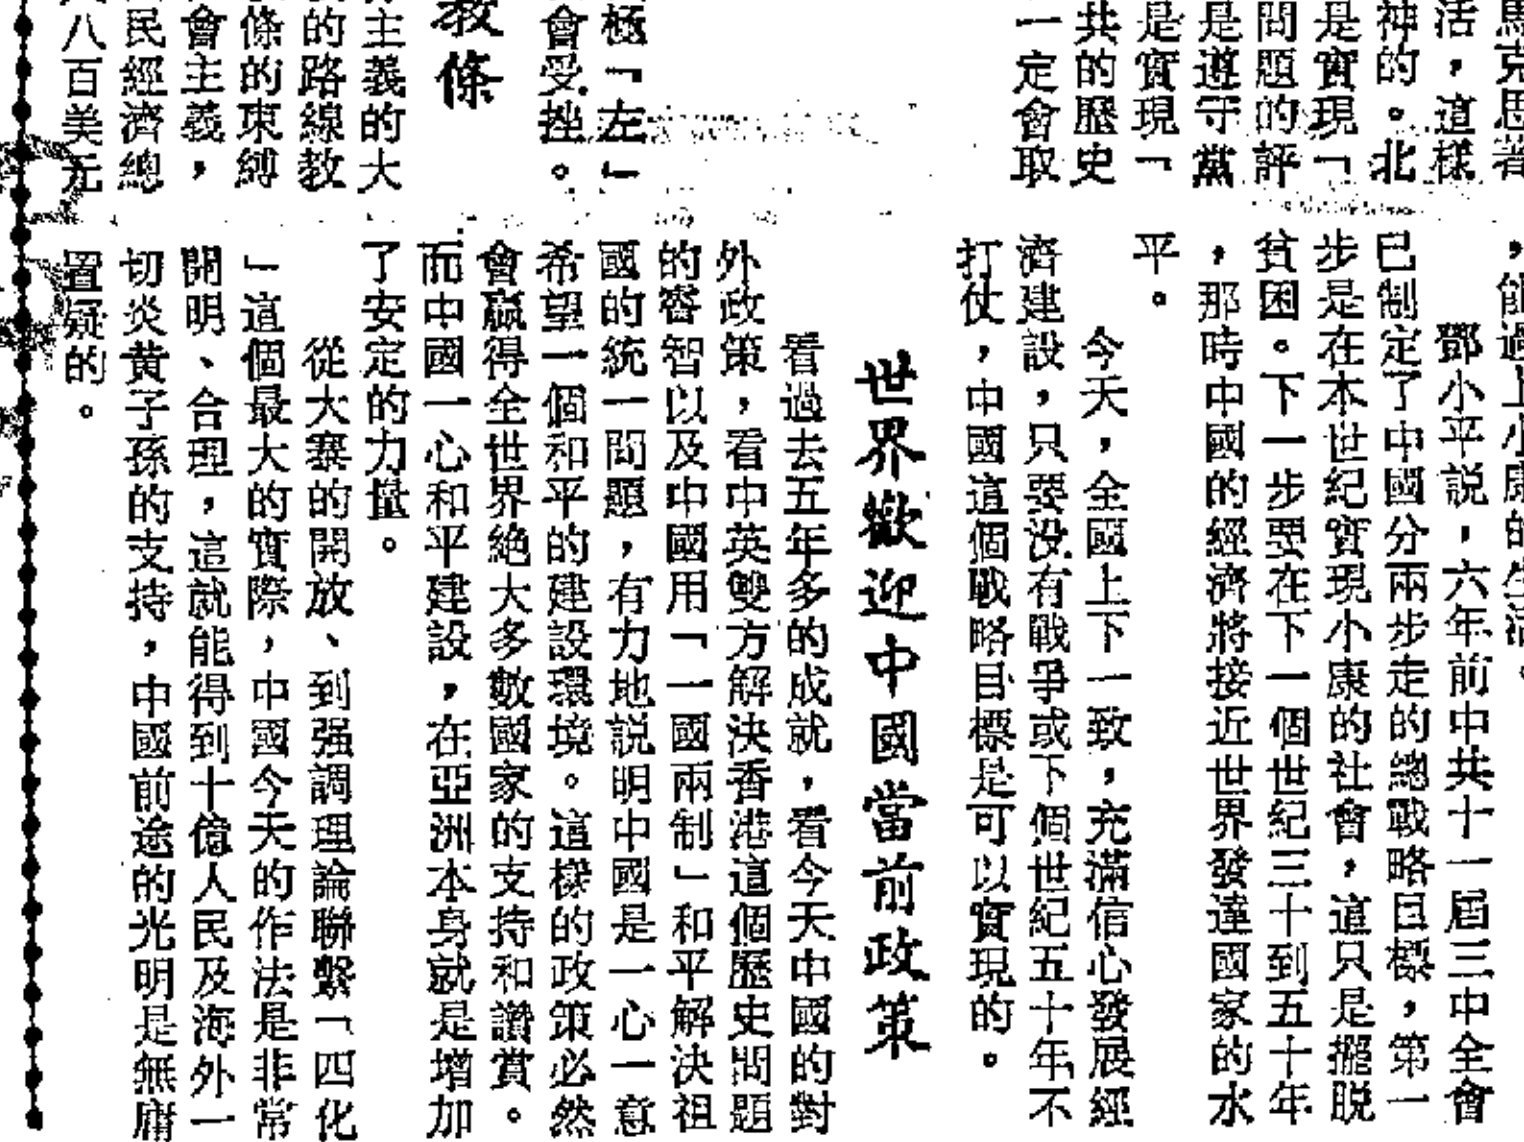 馬克思著
活，這樣
神的。北
是實現「
問題的評
是遵守黨
是實現「
共的歷史
一定會取
極「左」
會受挫。
教條
主義的大
的路線教
條的束縛
會主義，
民經濟總
八百美元
，能過上小康的生活。
鄧小平説，六年前中共十一屆三中全會
已制定了中國分兩步走的總戰略目標，第一
步是在本世紀實現小康的社會，這只是擺脱
貧困。下一步要在下一個世紀三十到五十年
，那時中國的經濟將接近世界發達國家的水
平。
今天，全國上下一致，充滿信心發展經
濟建設，只要没有戰爭或下個世紀五十年不
打仗，中國這個戰略目標是可以實現的。
世界歡迎中國當前政策
看過去五年多的成就，看今天中國的對
外政策，看中英雙方解決香港這個歷史問題
的睿智以及中國用「一國兩制」和平解決祖
國的統一問題，有力地説明中國是一心一意
希望一個和平的建設環境。這樣的政策必然
會贏得全世界絶大多數國家的支持和讚賞。
而中國一心和平建設，在亞洲本身就是增加
了安定的力量。
從大寨的開放、到强調理論聯繫「四化
」這個最大的實際，中國今天的作法是非常
開明、合理，這就能得到十億人民及海外一
切炎黄子孫的支持，中國前途的光明是無庸
置疑的。